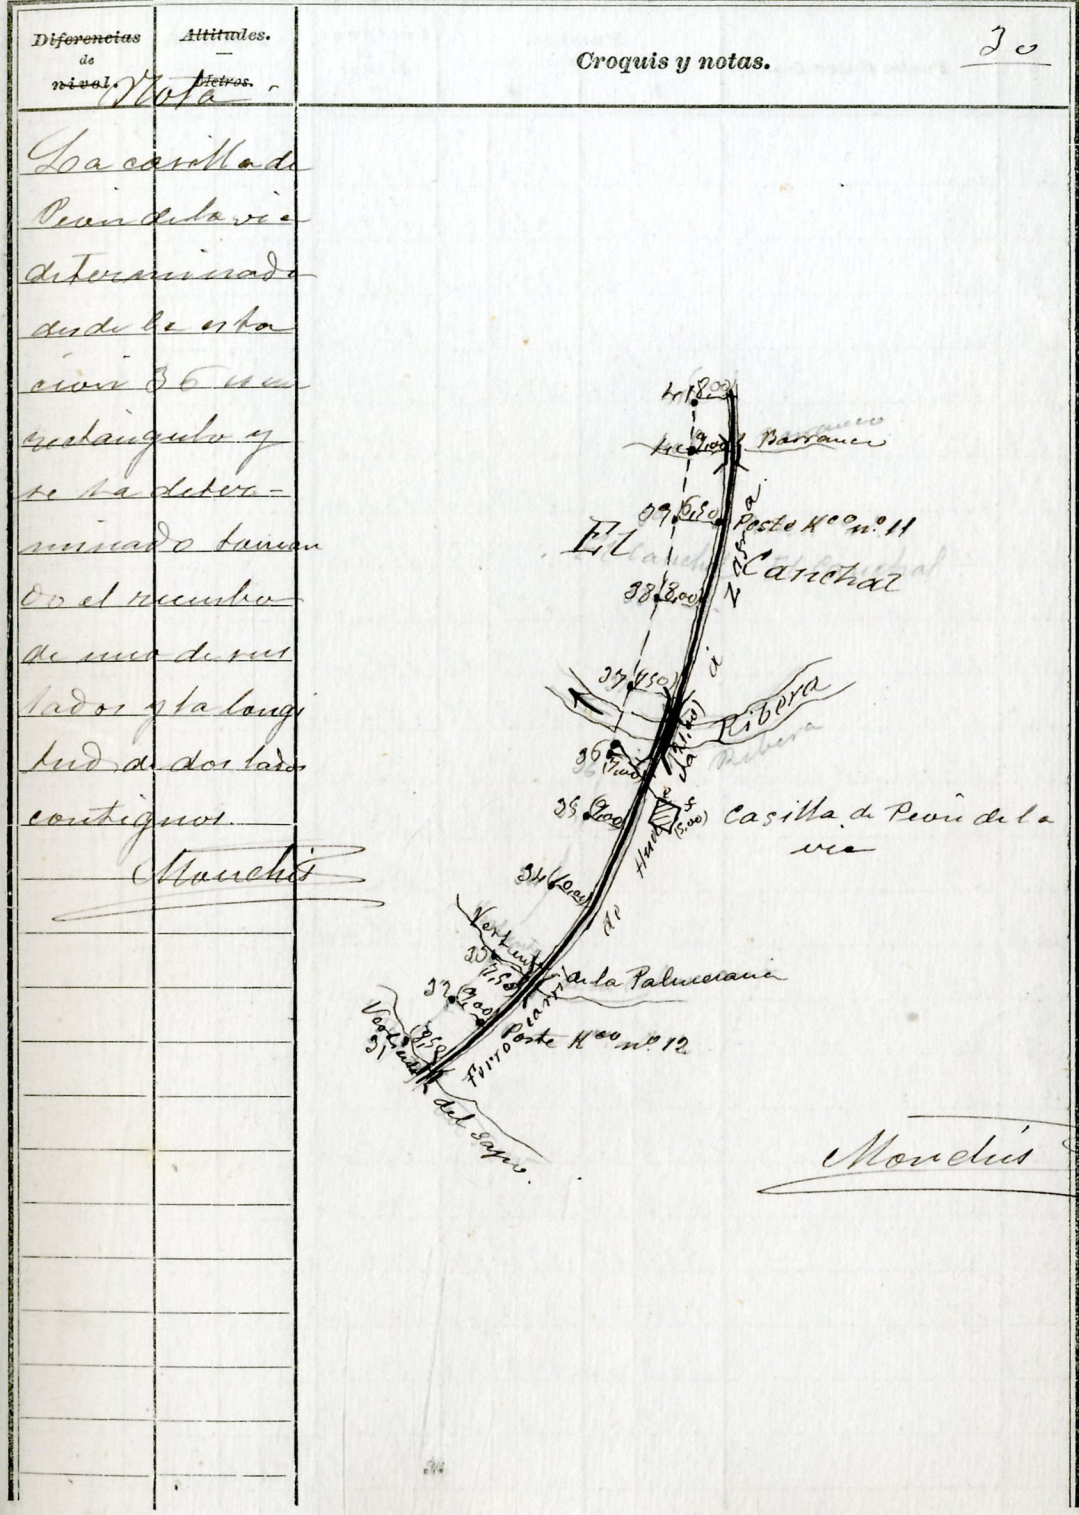 Diferencias
de
nivel.
Altitudes.
Metros.
Croquis y notas.
30
Nota
La casilla de
Peon de la via
determinada
desde la esta
cion 36 es un
rectángulo y
se ha deter-
minado toman
do el rumbo
de uno de sus
lados y la longi
tud de dos lados
contiguos.
Monchis
41 8,00
40 9,00 Barranco
39 (6,50) Poste Kco nº 11
El Canchal
38 (8,00)
37 (7,50)
Ribera
Ribera
36
35 (9,00)
5
(5,00)
Casilla de Peon de la
via
34 (10,00)
Vertiente
33
7,50
de la Palmerania
32 (9,00)
Poste Kco nº 12
Vertiente
31 (8,50)
del Sapo.
Ferro carril de Huelva á Zafra
Monchis